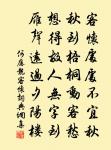 客懷處處不宜秋
秋到梧桐動客愁
想得故人無字到
雁聲遠過夕陽樓
何應龍客懷詞典網